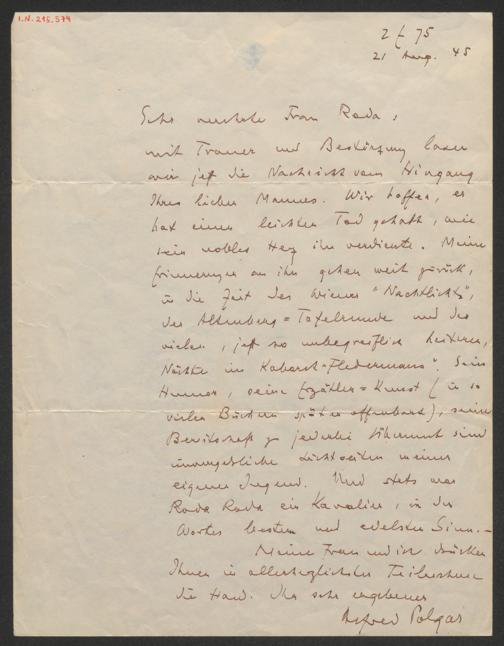 I.N. 215.574
21 Aug. 45
Sehr verehrte Frau Roda,
mit Trauer und Bestürzung lasen
wir jetzt die Nachricht vom Hingang
Ihres lieben Mannes. Wir hoffen, er
hat einen leichten Tod gehabt, wie
sein nobles Herz ihn verdiente. Meine
Erinnerungen an ihn gehen weit zurück,
in die Zeit des Wiener "Nachtlichts",
der Altenberg=Tafelrunde und der
vielen, jetzt so unbegreiflich heiteren,
Nächte im Kabaret "Fledermaus". Sein
Humor, seine Erzähler=Kunst (in so
vielen Büchern später offenbart), seine
Bereitschaft zu jederlei Übermut sind
unvergessliche Lichtseiten meiner
eigenen Jugend. Und stets war
Roda Roda ein Kavalier, in des
Wortes bestem und edelstem Sinn. –
Meine Frau und ich drücken
Ihnen in allerherzlichster Teilnahme
die Hand. Ihr sehr ergebener
Alfred Polgar